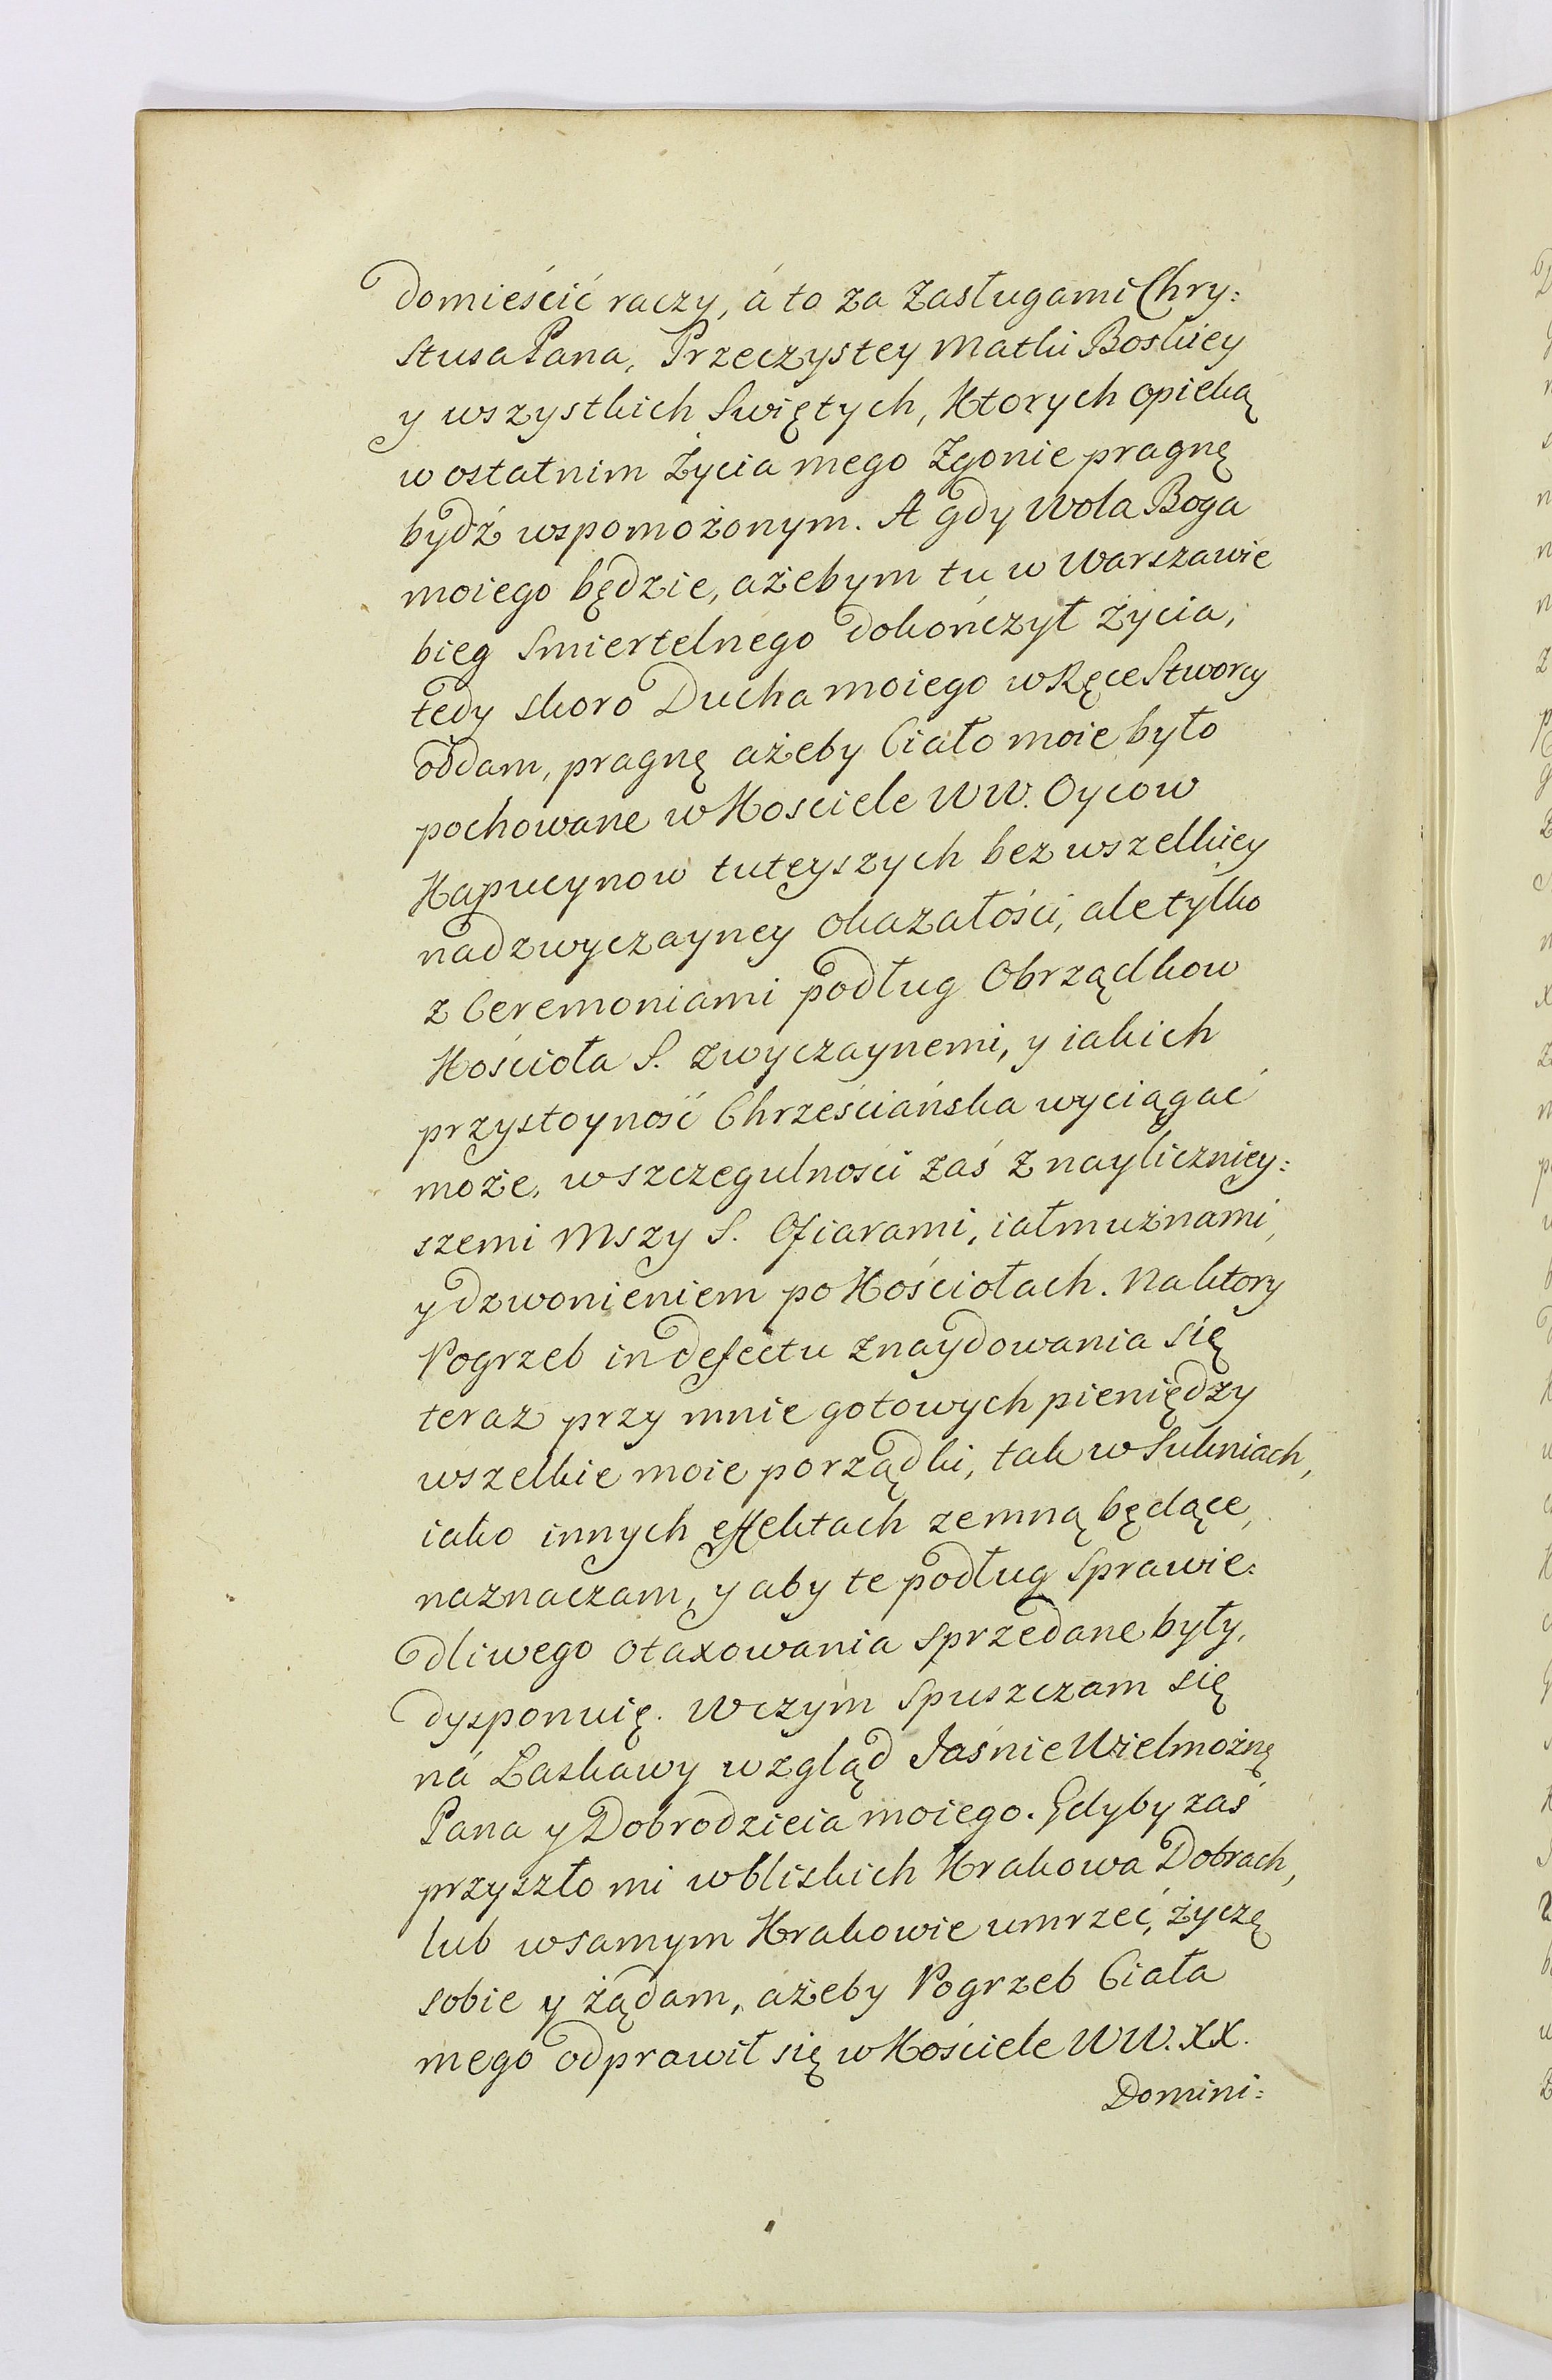 domieścić raczy, á to za Zasługami Chry:
stusa Pana, Przeczystey Matki Boskiey
y wszystkich Swiętych, Ktorych opieką
w ostatnim Życia mego Zgonie pragnę
bydź wspomożonym. A gdy Wola Boga
moiego będzie, ażebym tu w Warszawie
bieg Smiertelnego dokończył życia,
tedy skoro Ducha moiego w Ręce Stworcy
oddam, pragnę ażeby Ciało moie było
pochowane w Kosciele WW. Oycow
Kapucynow tuteyszych bez wszelkiey
nadzwyczayney okazałości, ale tylko
z Ceremoniami podług Obrządkow
Kościoła S. zwyczaynemi, y iakich
przystoyność Chrześciańska wyciągać
może, w szczegulnosci zaś z nayliczniey:
szemi Mszy S. Ofiarami, iałmużnami,
y dzwonieniem po Kościołach. Na ktory
Pogrzeb in defectu znaydowania się
teraz przy mnie gotowych pieniędzy
wszelkie moie porządki, tak w Sukniach,
iako innych effektach zemną będące,
naznaczam, y aby te podług Sprawie:
dliwego otaxowania sprzedane były,
dysponuię. W czym spuszczam się
ná Łaskawy wzgląd Jaśnie Wielmożnę
Pana y Dobrodzieia moiego. Gdyby zaś
przyszło mi w bliskich Krakowa Dobrach,
lub w samym Krakowie umrzeć, życzę
sobie y żądam, ażeby Pogrzeb Ciała
mego odprawił się w Kościele WW. XX.
Domini: